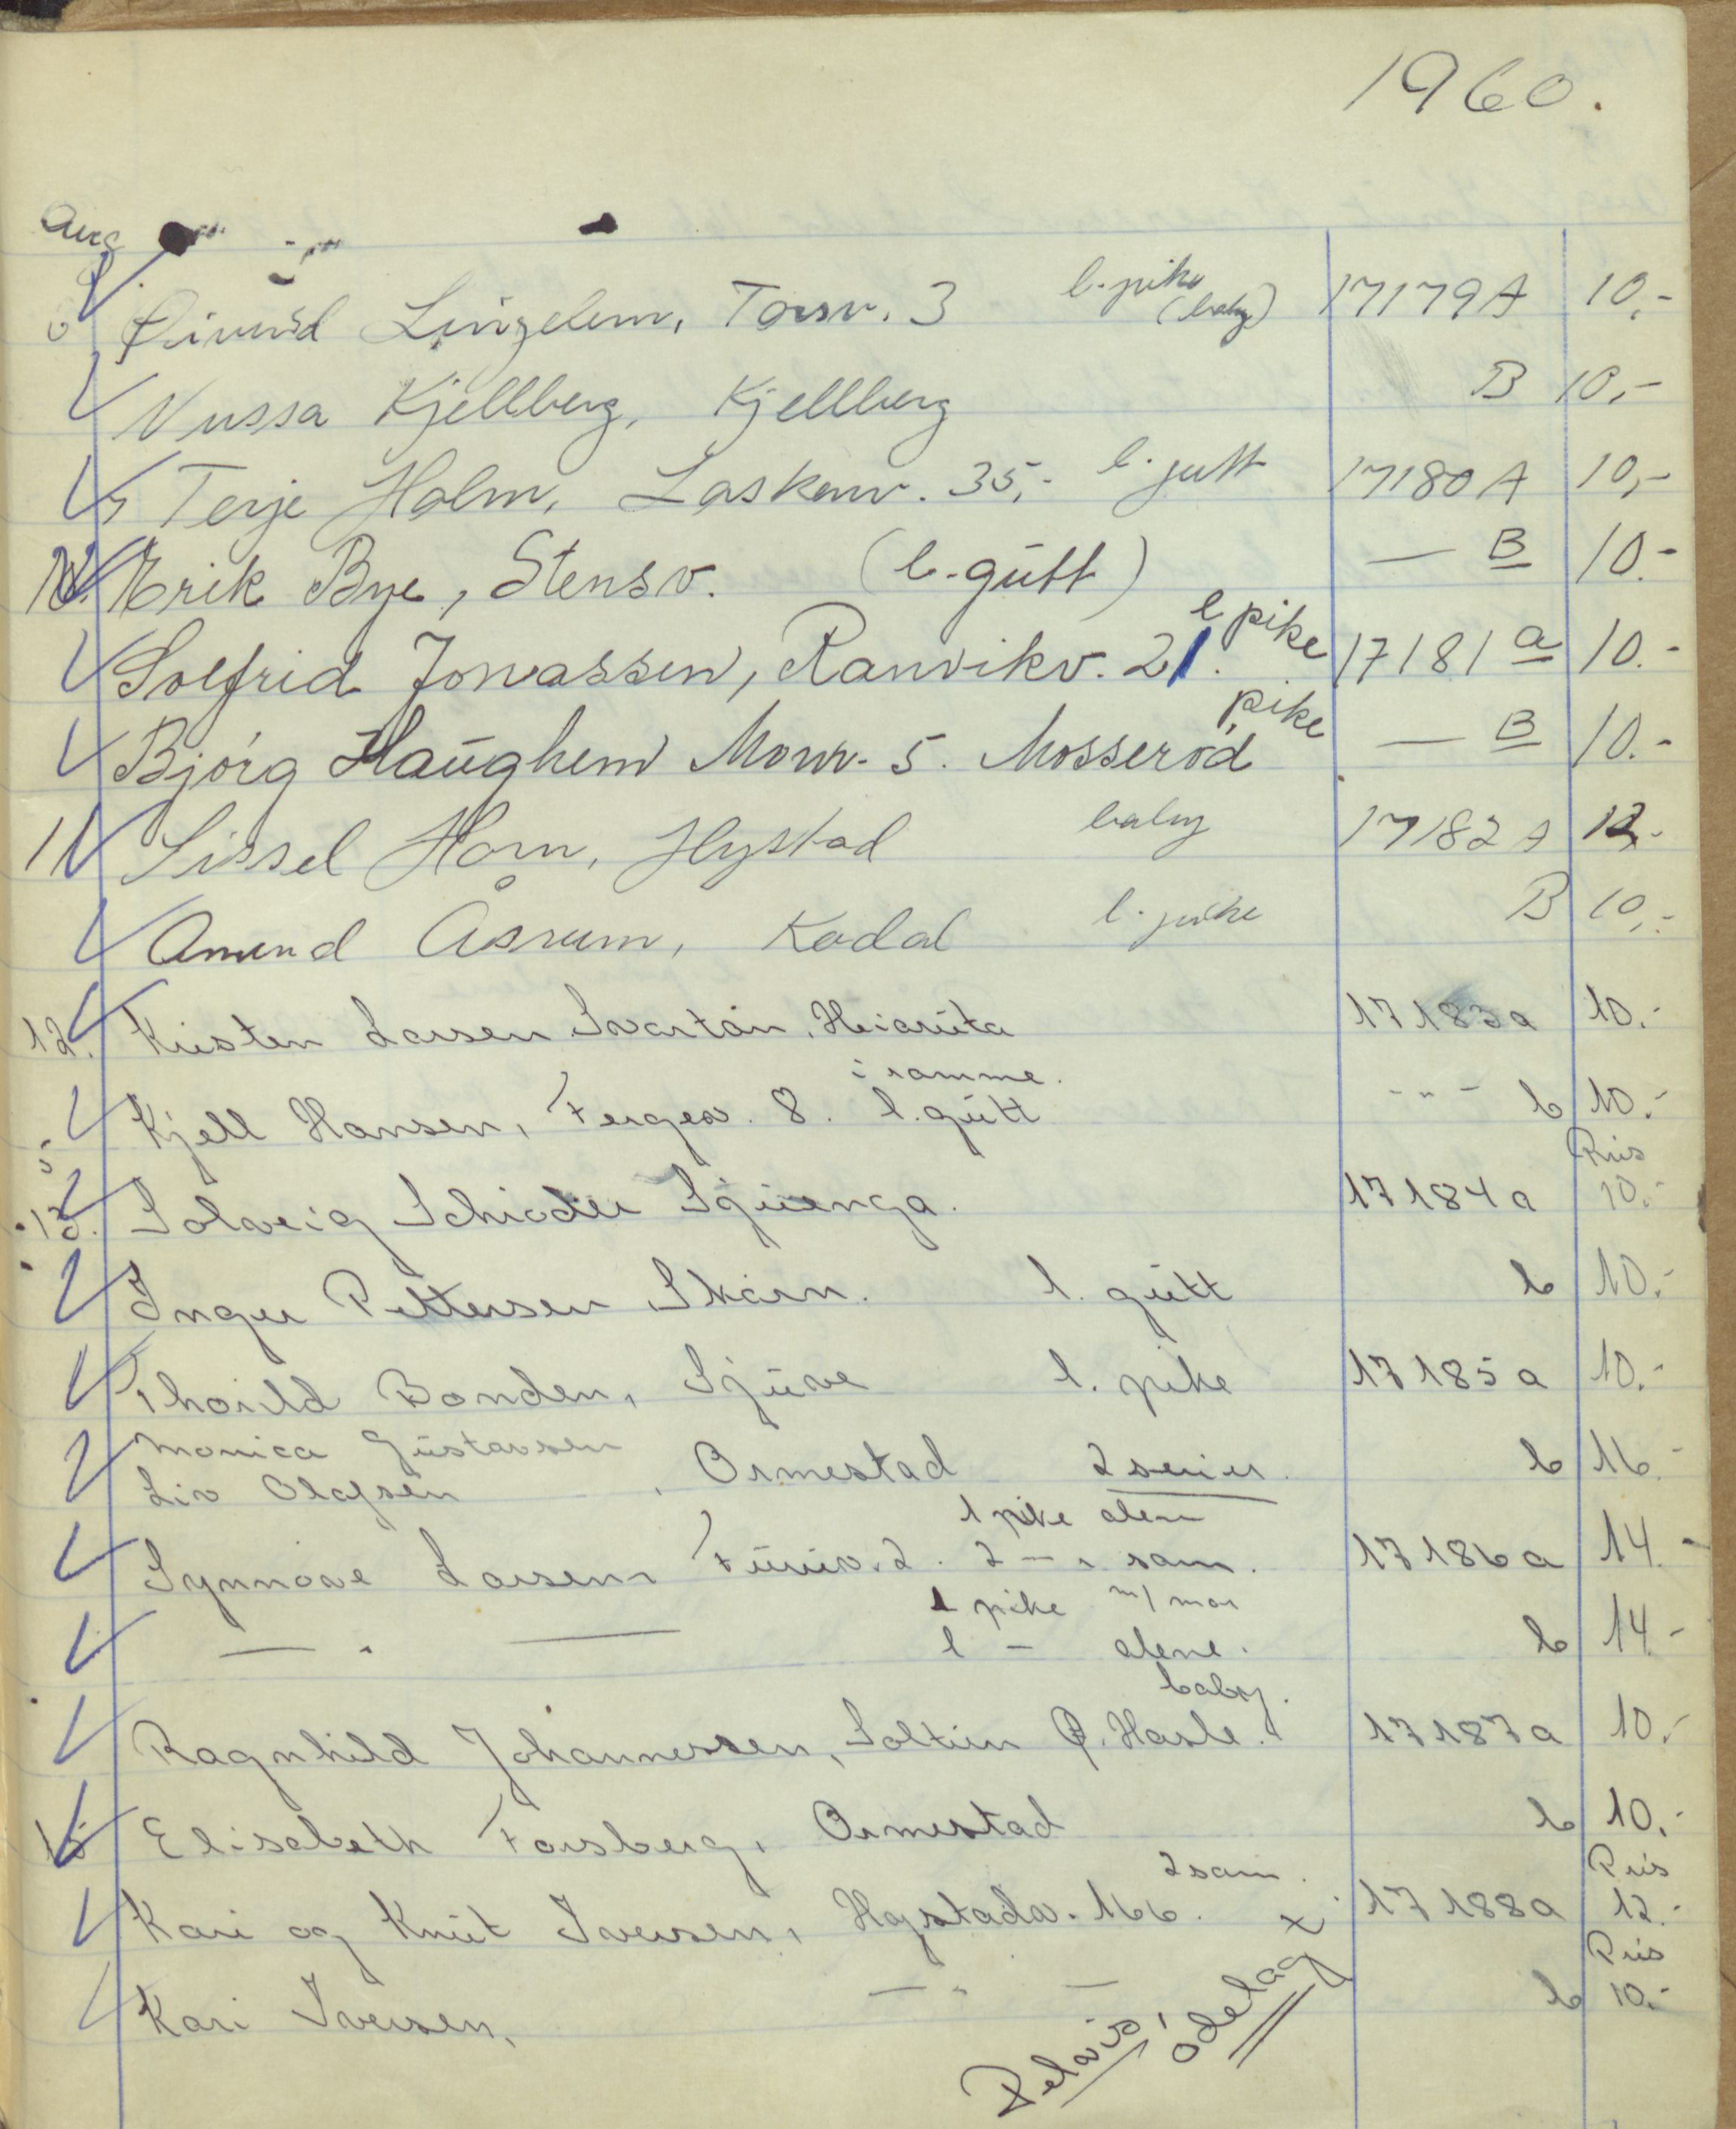 1960.
Aug
Øivind Lingelem, Torsv. 3 l. pike (baby) 17179 A 10,-
Nussa Kjellberg, Kjellberg B 10,-
Terje Holm, Laskenv. 35,- l. gutt 17180 A 10,-
10. Erik Bye, Stensv. (l. gutt) — B 10.-
Solfrid Jonassen, Ranvikv. 21. l pike 17181 a 10.-
Bjørg Haughem Monv. 5. Mosserød pike — B 10.-
11 Sissel Horn, Hystad baby 17182 A 12,-
Amund Åsrum, Kodal l. pike B 10,-
12. Kirsten Larsen Svartån, 17183a 10.-
i ramme.
Kjell Hansen, Fergev. 8. l. gutt - " - b 10.-
Pris
13. Solveig Schrøder 17184a 10.-
Inger Pettersen Skarn. l. gutt b 10.-
Thorild Bonden, Sjuve l. pike 17185a 10.-
Monica Gustavsen
Liv Olafsen, Ormestad 2 serier. b 16.-
1 pike alene
Synnøve Larsen Furuv. 2. 2 — " sam. 17186a 14.-
1 pike m/ mor
— " — 1 — alene. b 14.-
baby.
Ragnhild Johannessen, Soltun Ø. Hasle. 17187a 10.-
15 Elisabeth Forsberg, Ormestad b 10.-
2 sam. Pris
Kari og Knut Iversen, Hystadv. 166. x 17188a 12.-
Pris
Kari Iversen, — " — b 10.-
ødelag